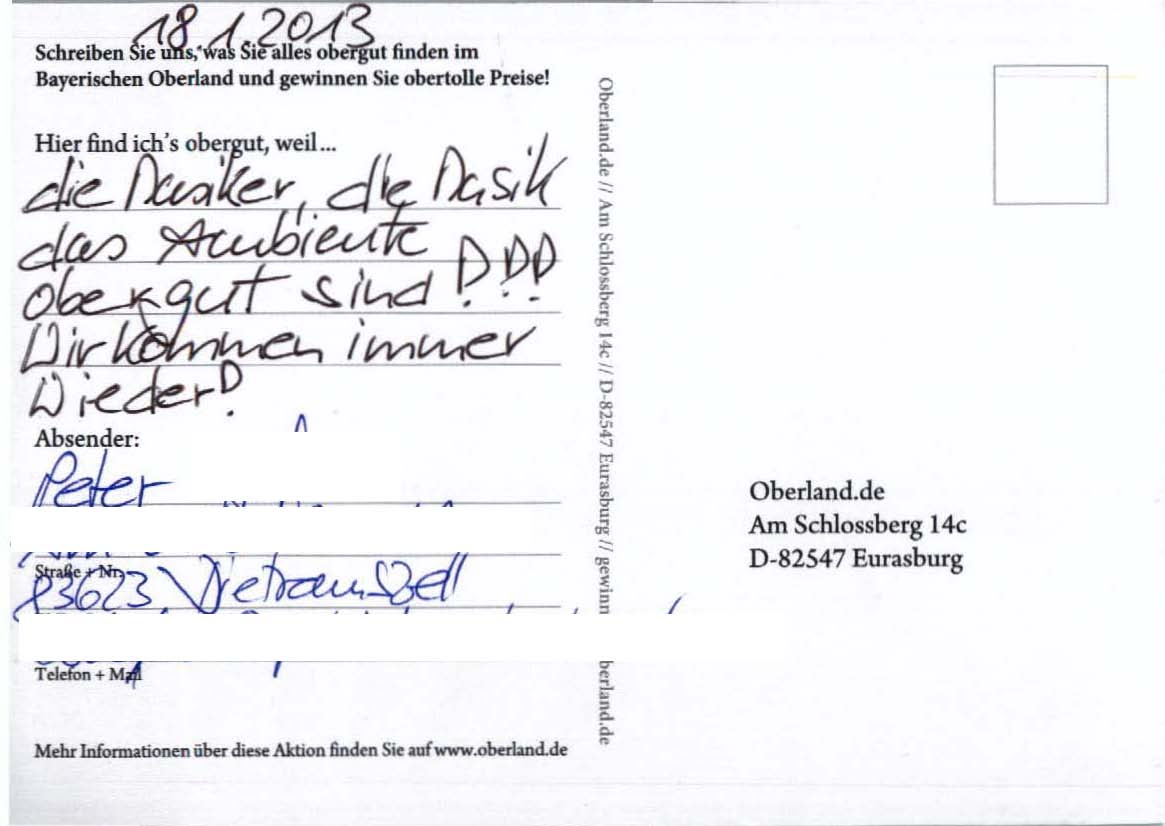 18.1.2013
Schreiben Sie uns, was Sie alles obergut finden im
Bayerischen Oberland und gewinnen Sie obertolle Preise!
Hier find ich's obergut, weil...
die Musiker, die Musik
das Ambiente
obergut sind!!!!
Wir kommen immer
Wieder!
Absender:
Peter
Straße + Nr.
83623 Dietramszell
Telefon + Mail
Mehr Informationen über diese Aktion finden Sie auf www.oberland.de
Oberland.de // Am Schlossberg 14c // D-82547 Eurasburg // gewinn berland.de
Oberland.de
Am Schlossberg 14c
D-82547 Eurasburg